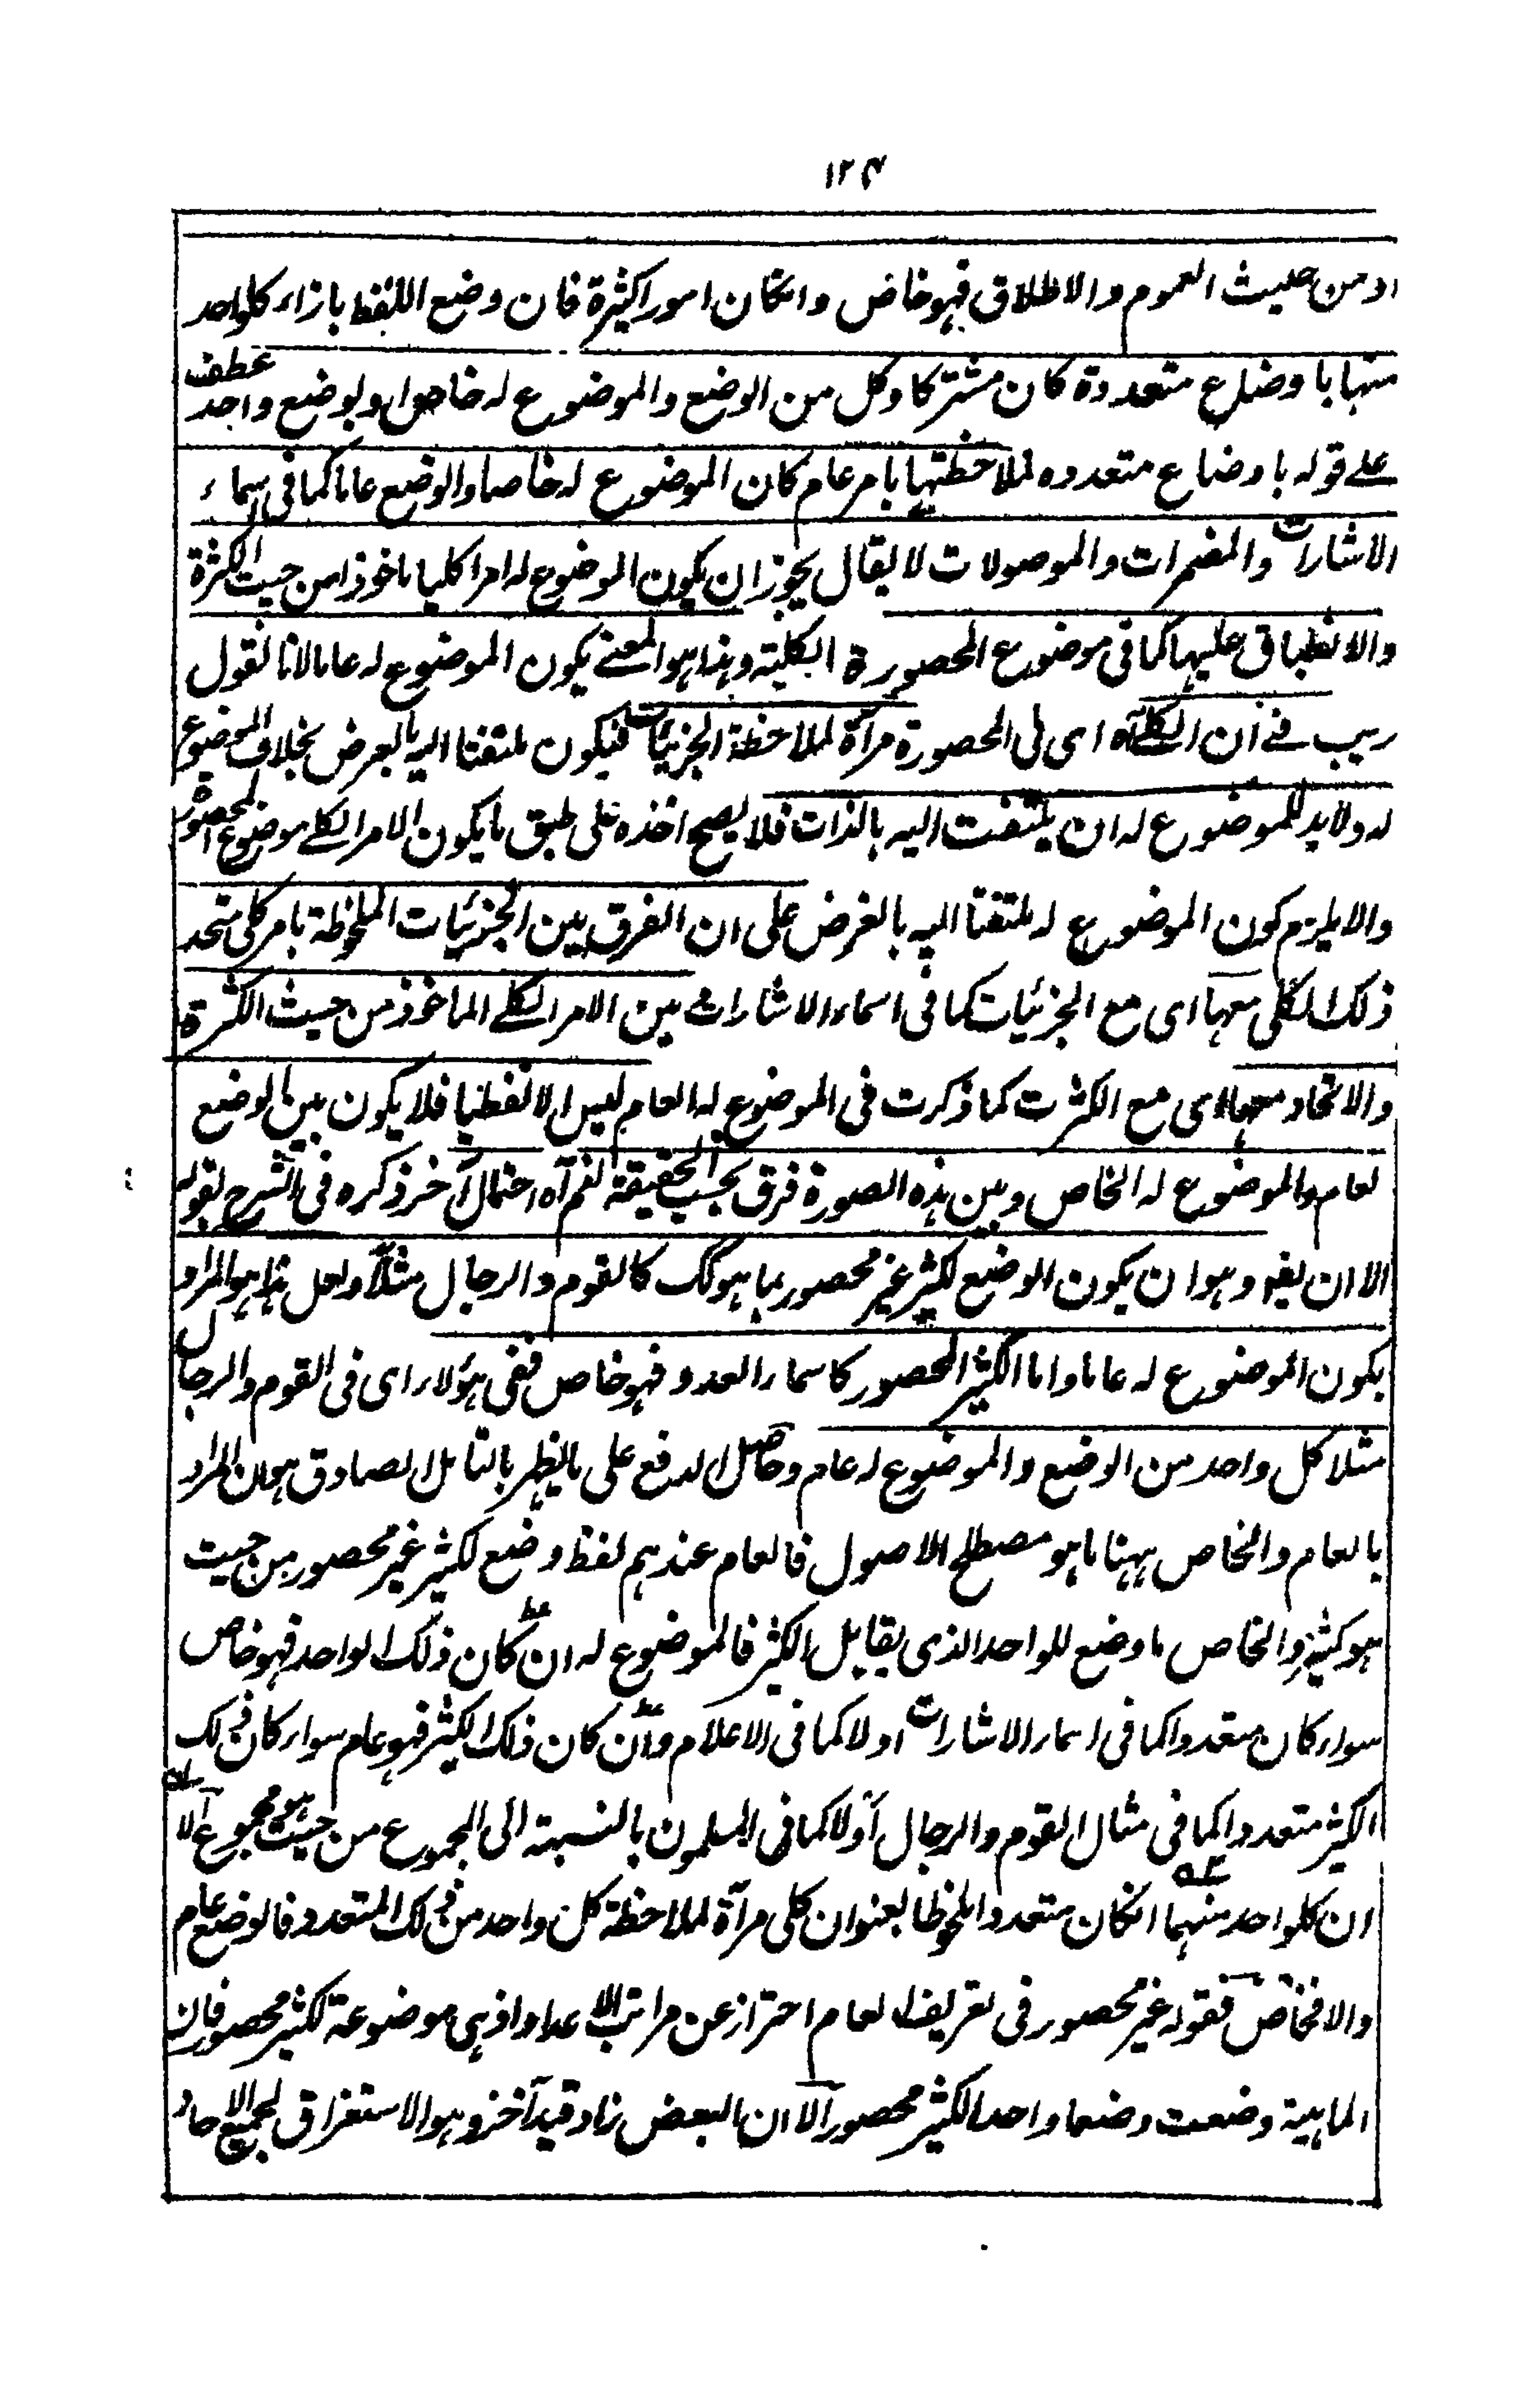 ١٢٤
او من حيث العموم والاطلاق فهو خاص وانكان امورا كثيرة فان وضع اللفظ بازاء كلواحد
منها باوضاع متعددة كان مشتركا وكل من الوضع والموضوع له خاصا او لوضع واحد عطف
على قوله باوضاع متعدده لملاحظتها بامر عام كان الموضوع له خاصا والوضع عاما كما فى اسماء
الاشارات والمضمرات والموصولات لا يقال يجوز ان يكون الموضوع له امرا كليا ماخوذا من حيث الكثرة
والانطباق عليها كما فى موضوع المحصورة الكلية وهذا هو المعنے يكون الموضوع له عاما لانا نقول
ريب فے ان الكلے آه اى فى المحصورة مرآة لملاحظة الجزئيات فيكون ملتفتا اليه بالعرض بخلاف الموضوع
له ولابد للموضوع له ان يلتفت اليه بالذات فلا يصح اخذه على طبق ما يكون الامر الكلے موضوع المحصورة
والا يلزم كون الموضوع له ملتفتا اليه بالعرض على ان الفرق بين الجزئيات الملحوظة بامر كلى متحد
ذلك الكلى معها اى مع الجزئيات كما فى اسماء الاشارات و بين الامر الكلے الماخوذ من حيث الكثرة
والاتحاد معها اى مع الكثرت كما ذكرت فى الموضوع له العام ليس الا لفظيا فلا يكون بين الوضع
لعام والموضوع له الخاص وبين هذه الصورة فرق بحسب الحقيقة نعم آه احتمال آخر ذكره فى الشرح بقوله
الا ان يقو وهو ان يكون الوضع لكثير غير محصور بما هو كك كالقوم والرجال مثلا ولعل هذا هو المراد
بكون الموضوع له عاما واما الكثير المحصور كاسماء العدد فهو خاص ففى هؤلاء اى فى القوم والرجال
مثلا كل واحد من الوضع والموضوع له عام وحاصل الدفع على ما يظهر بالتامل الصادق هو ان المراد
بالعام والخاص ههنا ما هو مصطلح الاصول فالعام عندهم لفظ وضع لكثير غير محصور من حيث
هو كثير والخاص ما وضع للواحد الذى يقابل الكثير فالموضوع له ان كان ذلك الواحد فهو خاص
سواء كان متعددا كما فى اسماء الاشارات او لا كما فى الاعلام وان كان ذلك الكثير فهو عام سواء كان ذلك
الكثير متعددا كما فى مثال القوم والرجال او لا كما فى المسلمون بالنسبة الى المجموع من حيث هو مجموع الا
ان كلواحد منهما انكان متعددا ملحوظا بعنوان كلى مرآة لملاحظة كل واحد من ذلك المتعدد فالوضع عام
والا فخاص فقوله غير محصور فى تعريف العام احتراز عن مراتب الاعداد اذ هى موضوعة لكثير محصور فان
الماهية وضعت وضعا واحدا لكثير محصور الا ان البعض زاد قيدا آخر وهو الاستغراق لجميع الاحاد